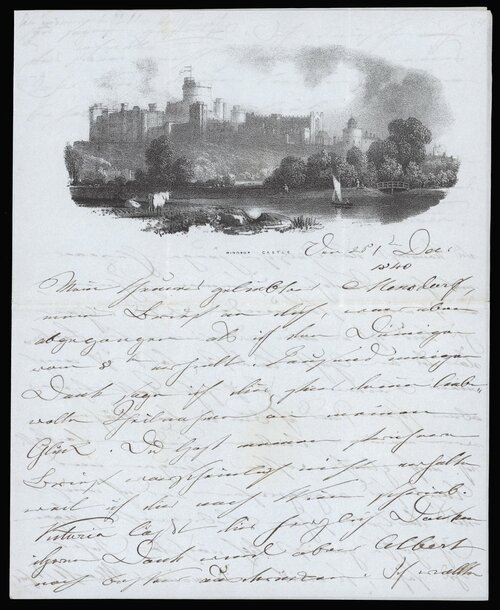 WINDSOR CASTLE
Den 28t Dec.
1840
Mein theurer geliebter Mensdorff
mein Brief an dich, war eben
abgegangen als ich den Deinigen
vom 8t erhielt. Tausend innigen
Dank sage ich dir für deine liebe-
volle Theilnahme an meinem
Glück. Du hast meinen früheren
Brief wahrscheinlich nicht erhalten
weil ich dir nach Wien schrieb.
Victoria läßt dir herzlich Danken
ihren Dank wird aber Albert
noch besser ausdrücken. Ich wollte